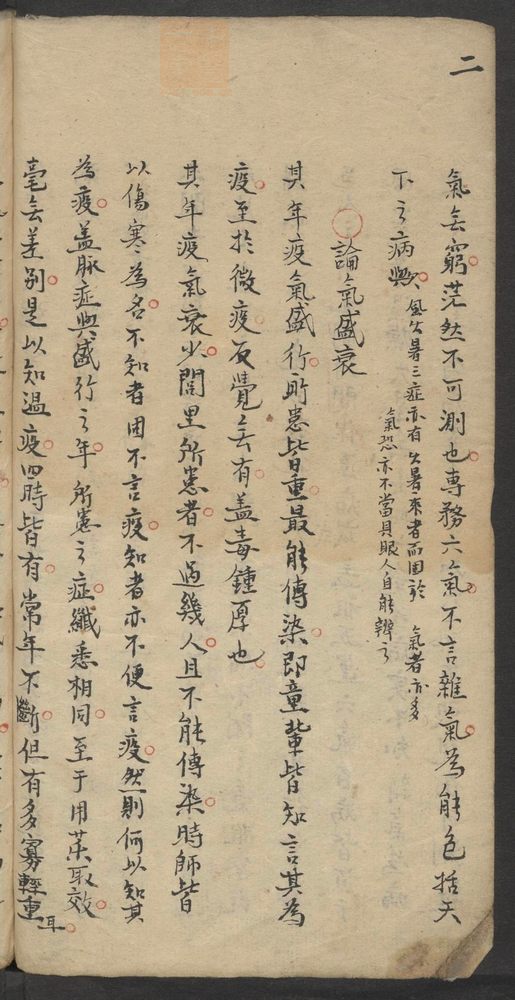 二
氣無窮茫然不可測也專務六氣不言雜氣為能包括天
下之病與
風火暑三症亦有火暑來者而困於 氣者亦多
氣恐亦不當具眼人自能辨之
論氣盛衰
其年疫氣盛行所患皆重最能傳染即童輩皆知言其為
疫至於微疫反覺無有蓋毒鍾厚也
其年疫氣衰少閭里所患者不過幾人且不能傳染時師皆
以傷寒為名不知者固不言疫知者亦不便言疫然則何以知其
為疫蓋脉症與盛行之年所患之症纖悉相同至于用藥取效
毫無差別是以知温疫四時皆有常年不斷但有多寡輕重耳